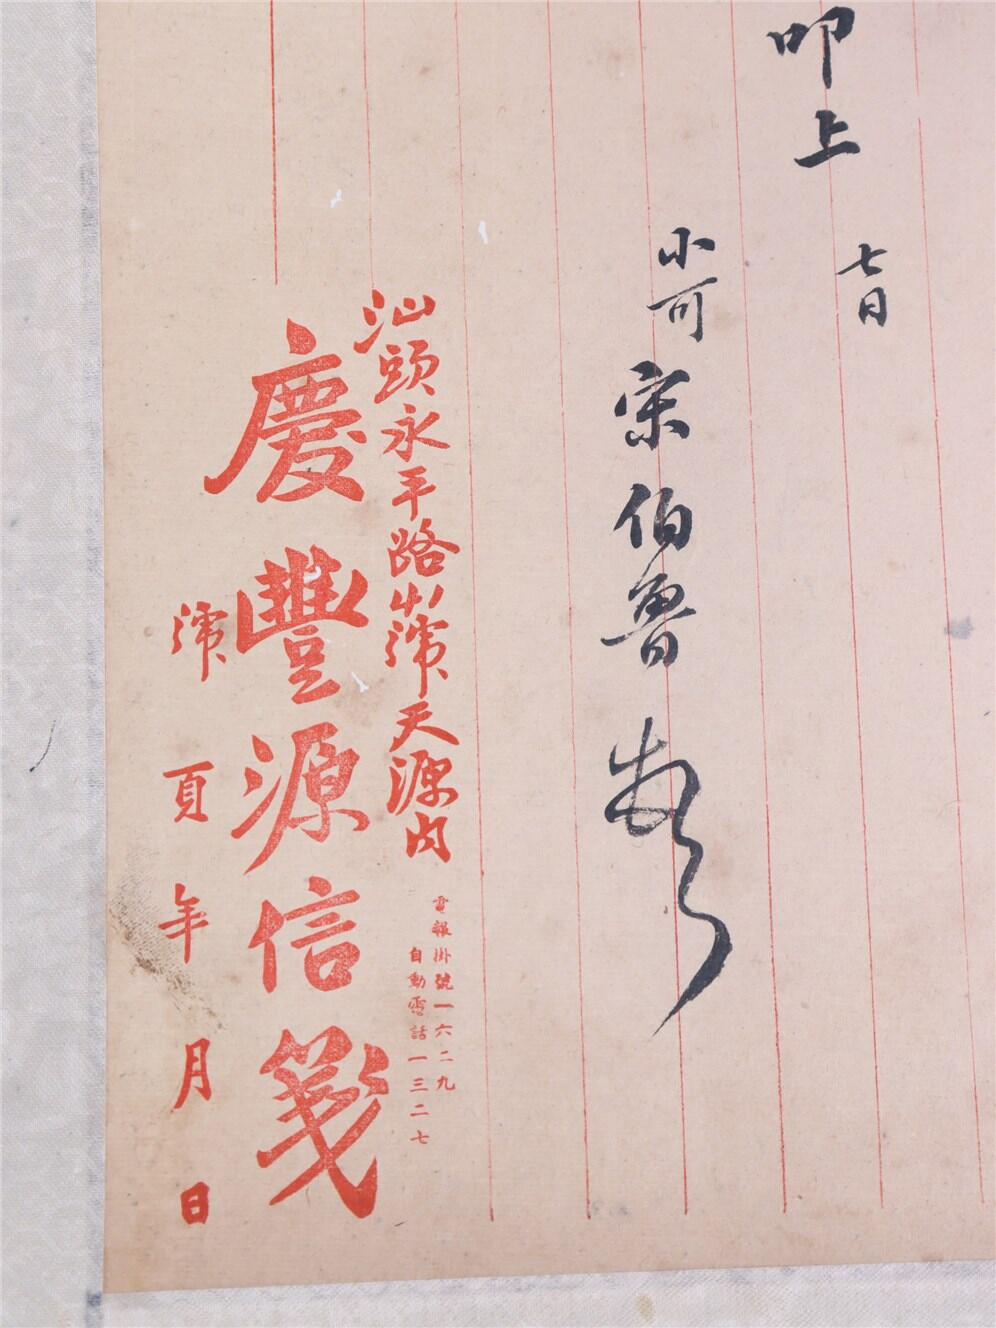 叩上
七月
小可宋伯魯
汕頭永平路 號天源內
電報掛號一六二九
自動電話一三二七
慶豐源信箋
號 頁 年 月 日